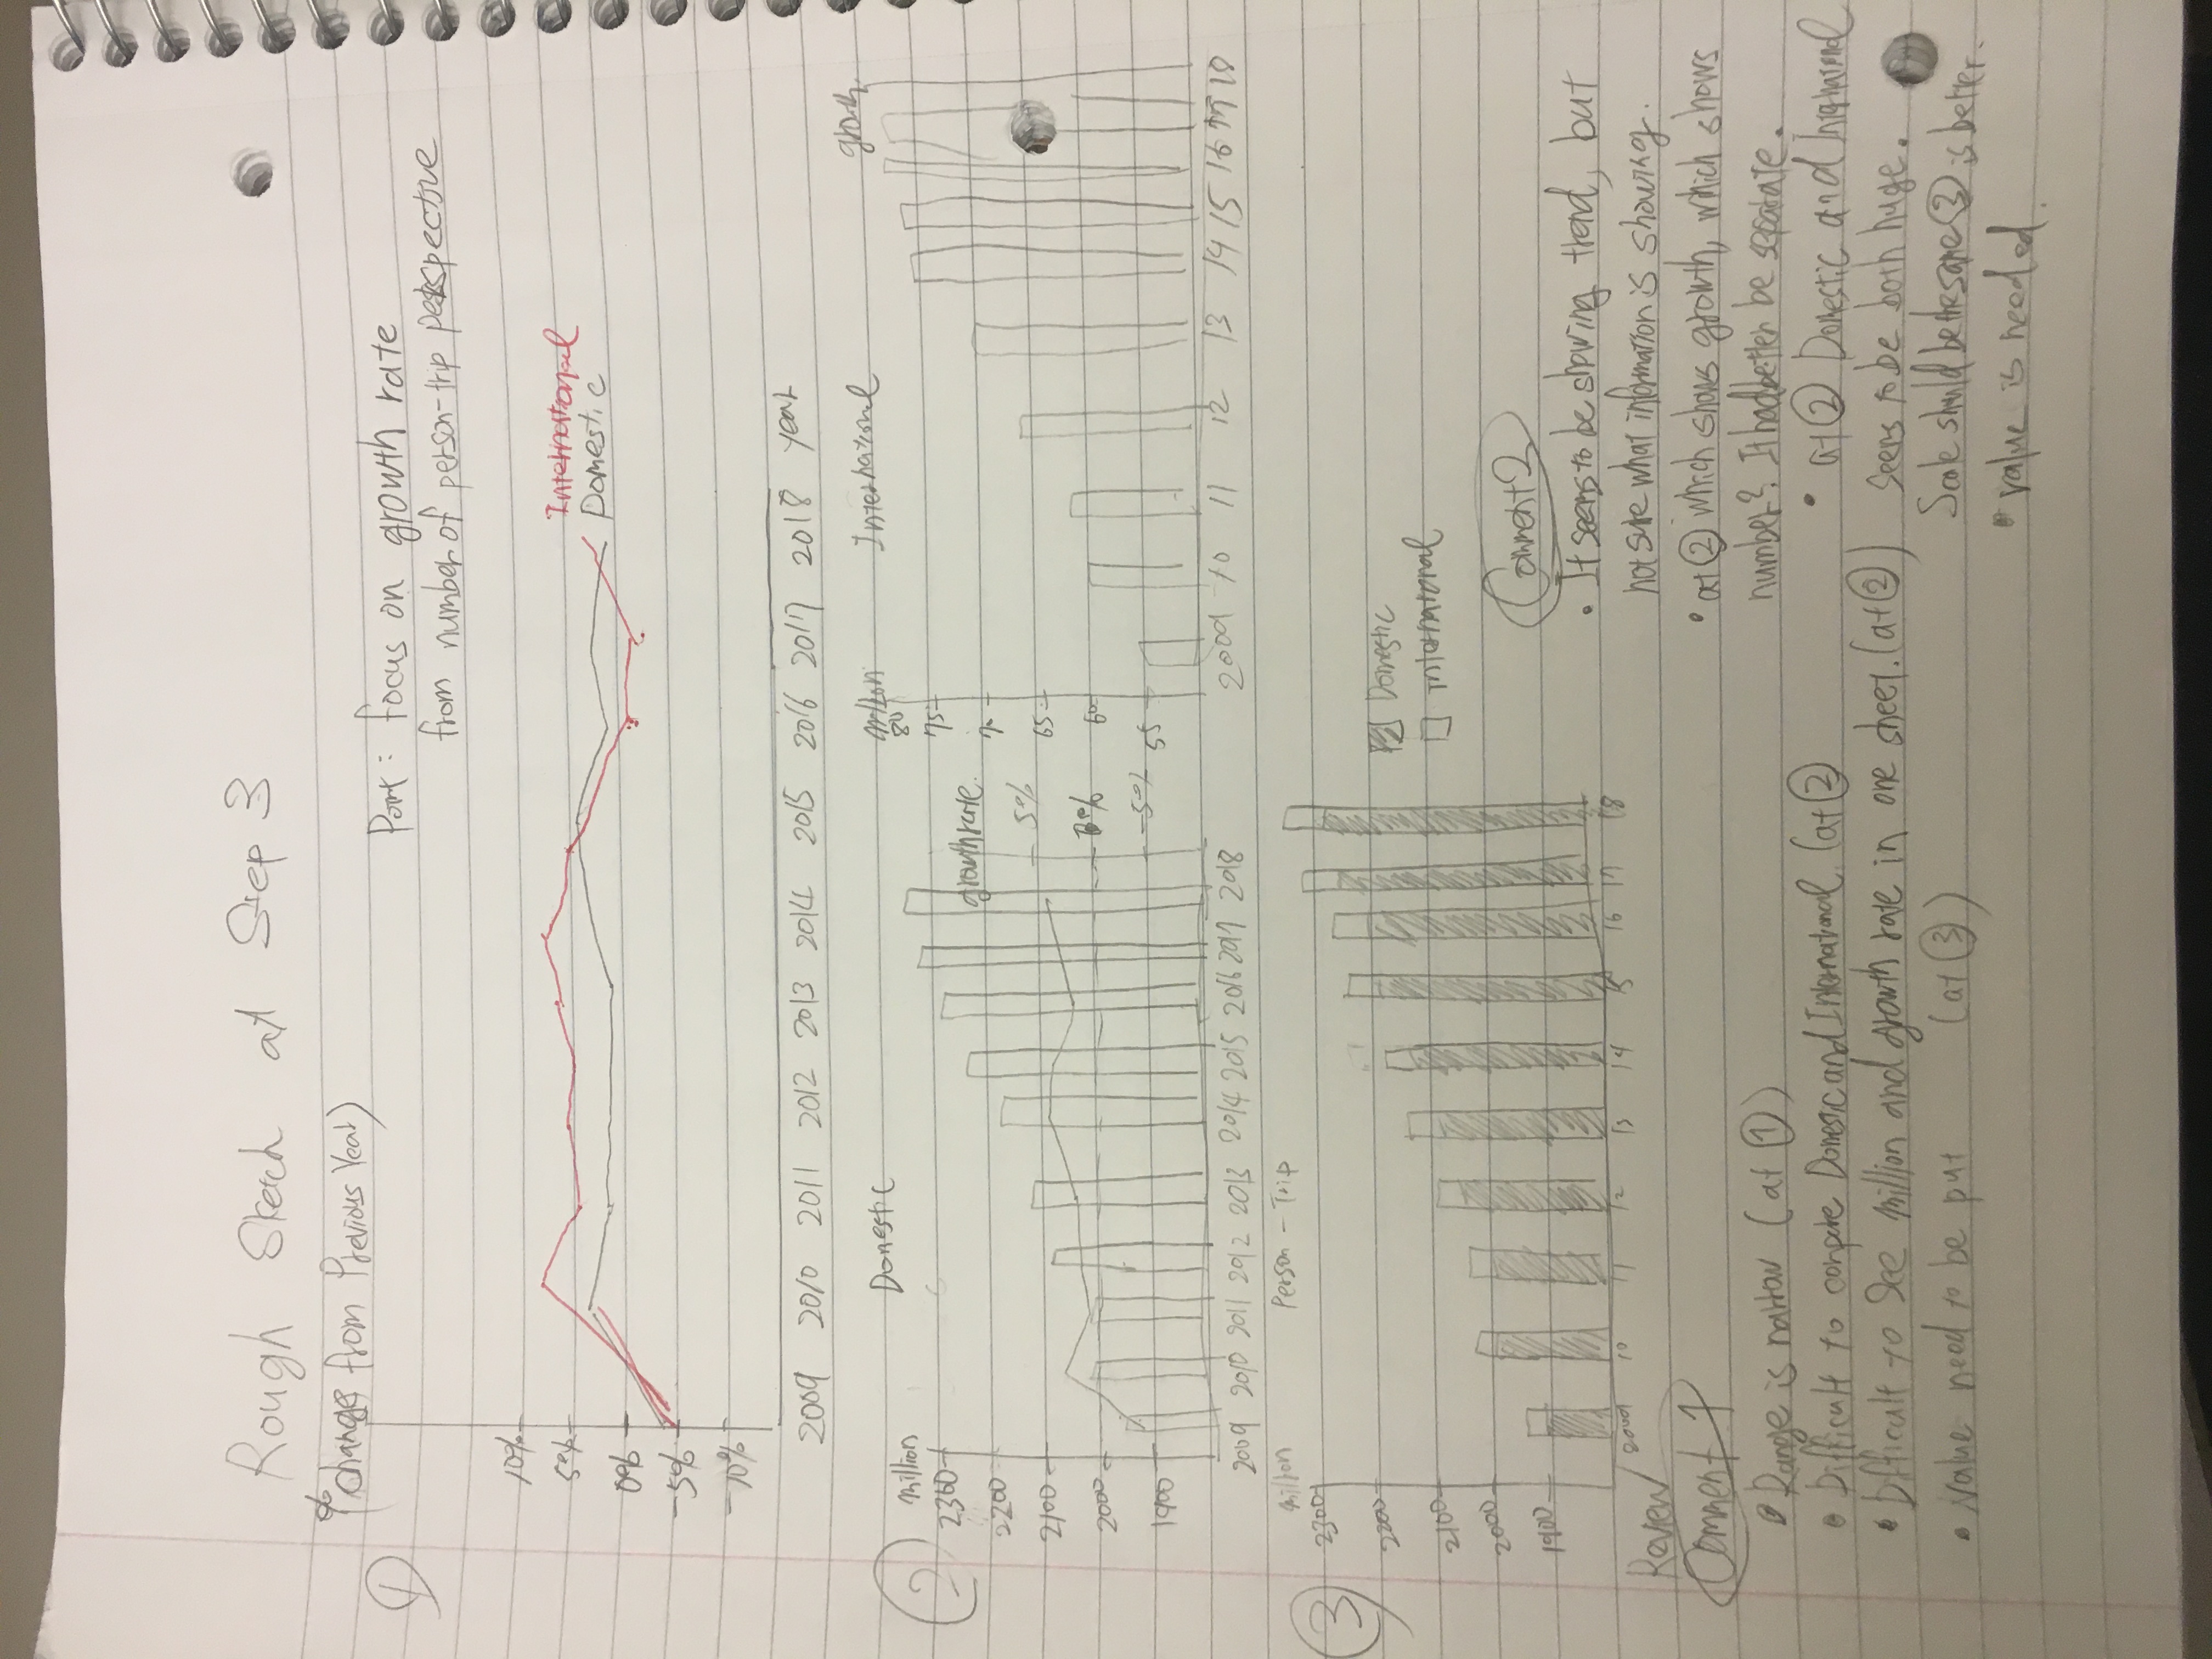 Rough Sketch at Step 3
(% change from Previous Year)
①
Point : focus on growth rate
from number of person-trip perspective
10%
5%
0%
-5%
-10%
International
Domestic
2009 2010 2011 2012 2013 2014 2015 2016 2017 2018 year
②
Domestic
million
2300
2200
2100
2000
1900
growth rate.
5%
0%
-5%
2009 2010 2011 2012 2013 2014 2015 2016 2017 2018
International
growth
million
80
75
70
65
60
55
2009 10 11 12 13 14 15 16 17 18
③
million
Person - Trip
2300
2200
2100
2000
1900
Domestic
International
2009 10 11 12 13 14 15 16 17 18
Review
Comment 1
• Range is narrow (at ①)
• Difficult to compare Domestic and International. (at ②
• Difficult to see million and growth rate in one sheet. (at ②)
• Value need to be put (at ③)
Comment 2
• It seems to be showing trend, but
not sure what information is showing.
• at ② which shows growth, which shows
number? It had better be separate.
• at ② Domestic and International
seems to be both huge.
Scale should be the same ③ is better.
• value is needed.